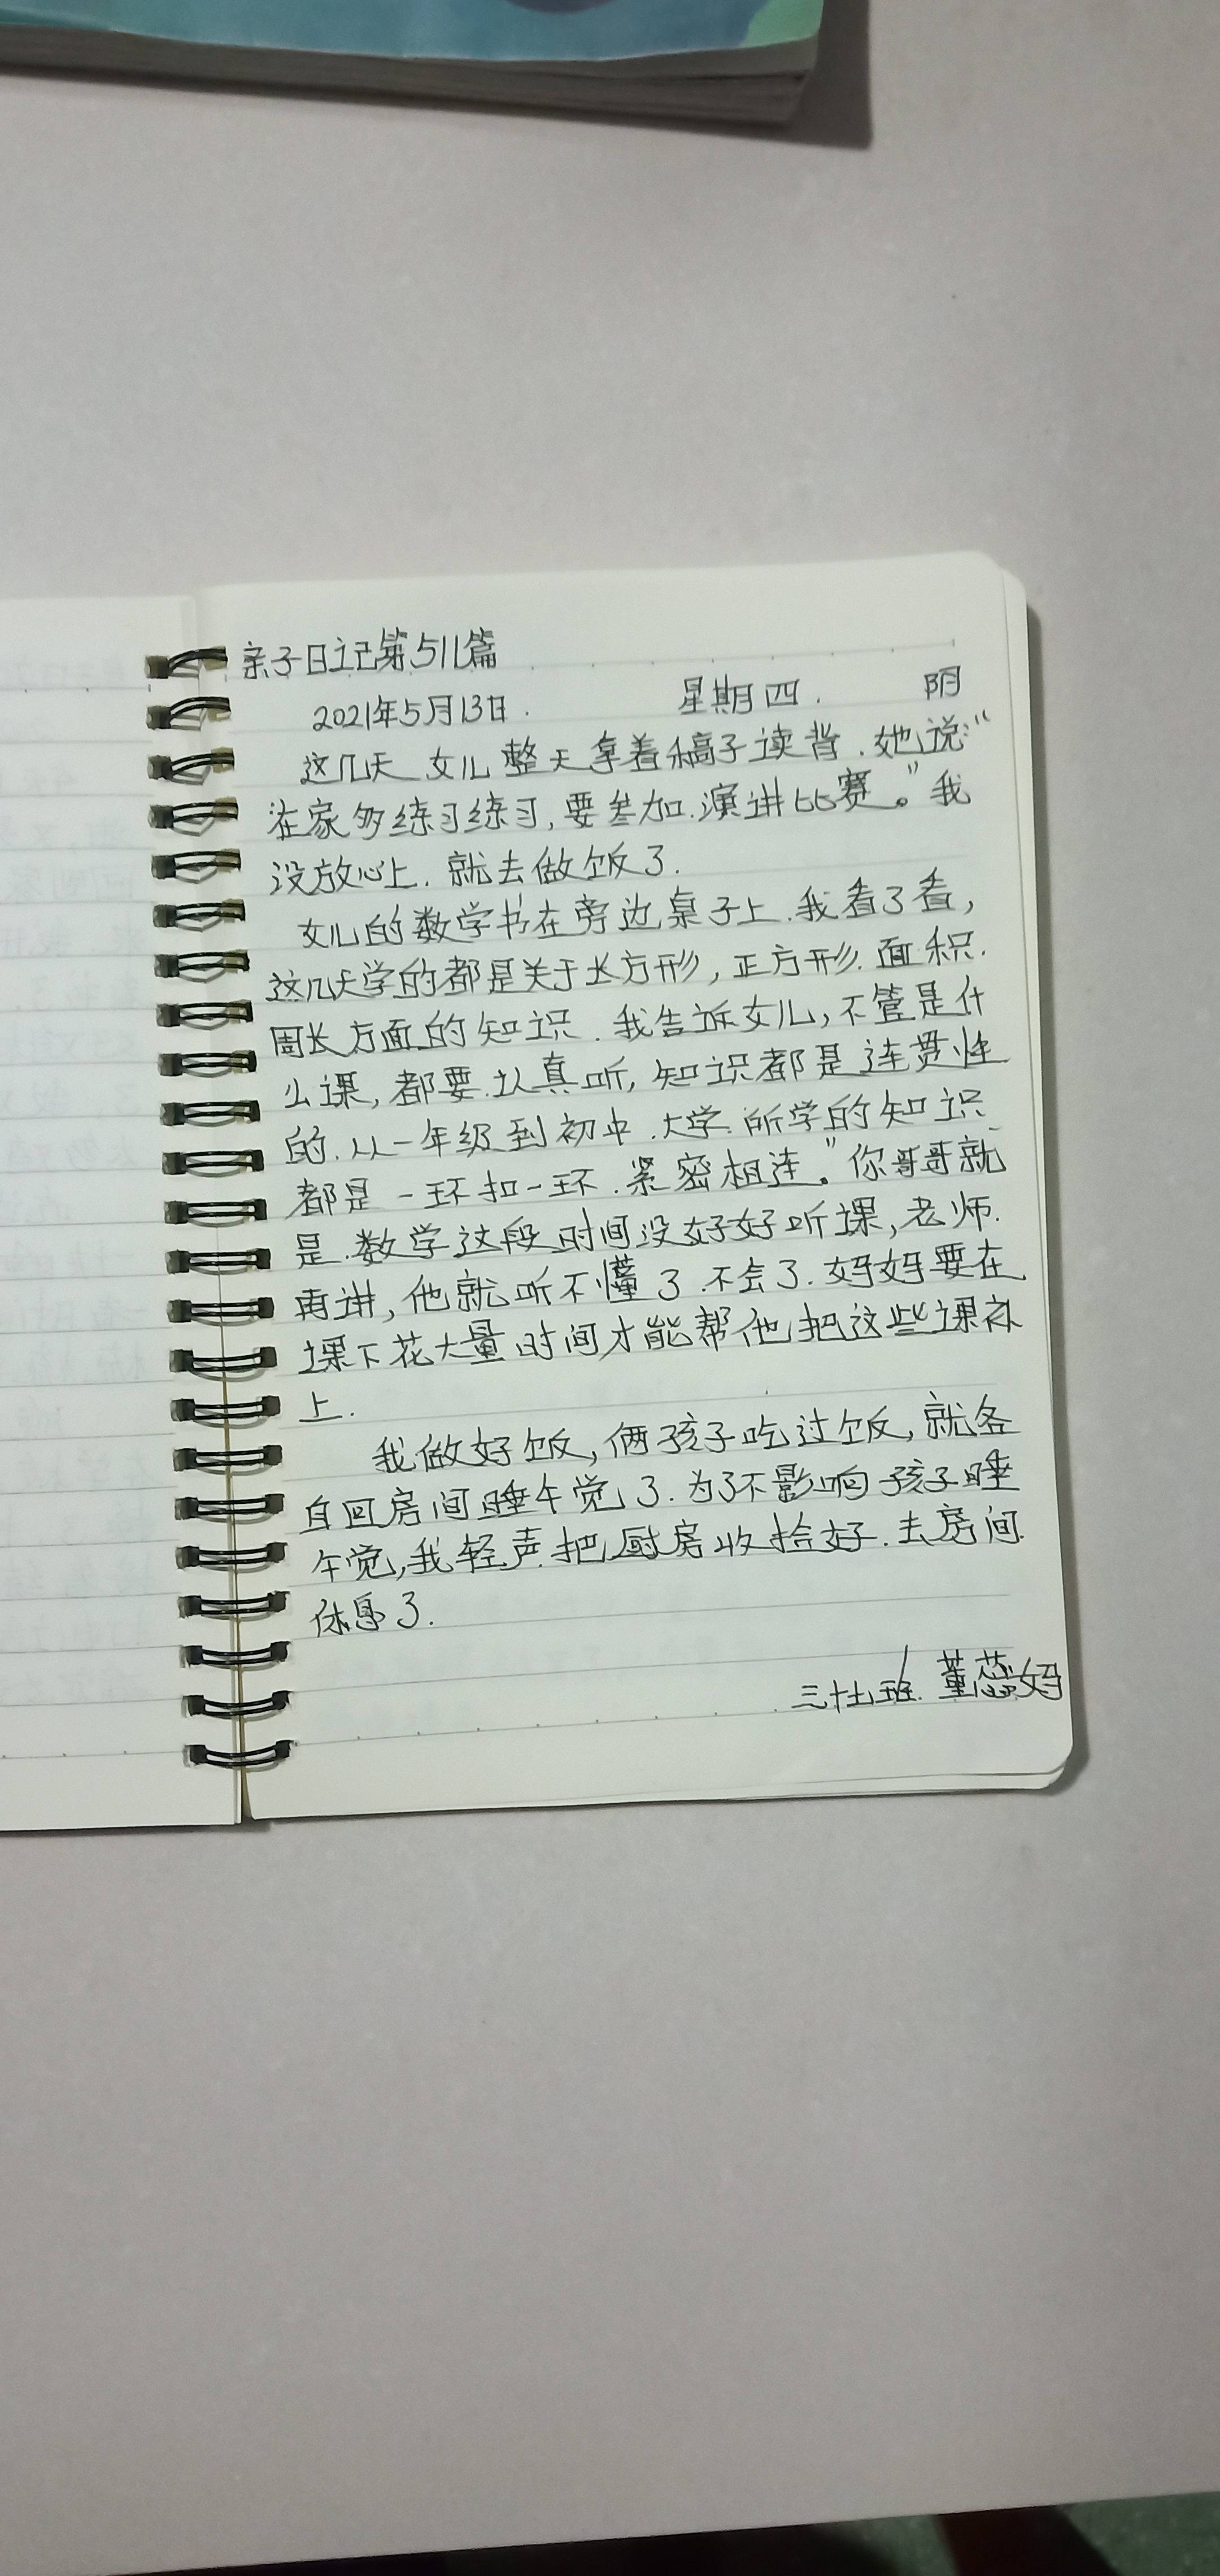 亲子日记第511篇
2021年5月13日. 星期四. 阴
这几天女儿整天拿着稿子读背.她说:“
在家多练习练习,要参加.演讲比赛。”我
没放心上.就去做饭了.
女儿的数学书在旁边桌子上.我看了看,
这几天学的都是关于长方形,正方形.面积.
周长方面的知识.我告诉女儿,不管是什
么课,都要认真听,知识都是连贯性
的.从一年级到初中.大学.所学的知识
都是一环扣一环.紧密相连。”你哥哥就
是.数学这段时间没好好听课,老师.
再讲,他就听不懂了.不会了.妈妈要在
课下花大量时间才能帮他把这些课补
上.
我做好饭,俩孩子吃过饭,就各
自回房间睡午觉了.为了不影响孩子睡
午觉,我轻声把厨房收拾好.去房间.
休息了.
班.董蕊妈